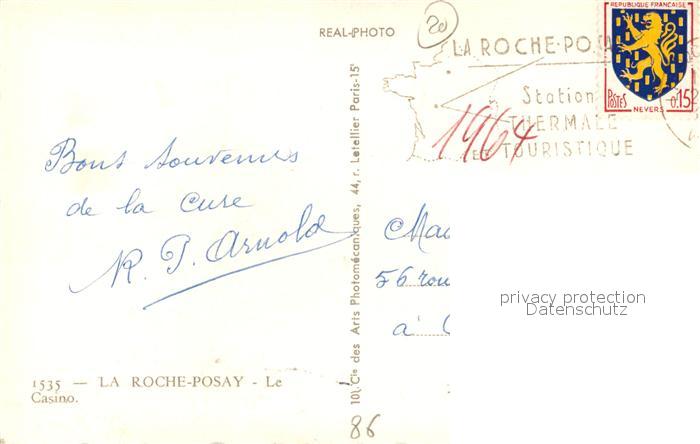 REAL-PHOTO
20
LA ROCHE-POSA
Station
THERMALE
ET TOURISTIQUE
REPUBLIQUE FRANÇAISE
POSTES 0,15
NEVERS
1964
Bons souvenirs
de la cure
R. P. Arnold
10, Cie des Arts Photomécaniques, 44, r. Letellier Paris-15e
56 rou
à
privacy protection
Datenschutz
1535 — LA ROCHE-POSAY - Le
Casino.
86